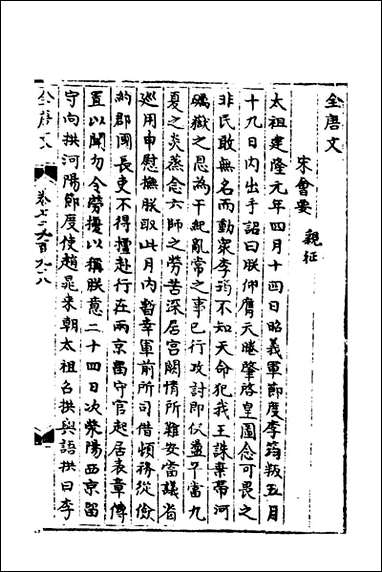 全唐文
宋會要 親征
太祖建隆元年四月十四日昭義軍節度李筠叛五月
十九日内出手詔曰朕仰膺天睠肇啓皇圖念可畏之
非民敢無名而動衆李筠不知天命犯我王誅棄帶河
礪嶽之恩為干紀亂常之事已行攻討即俟盪平當九
夏之炎蒸念六師之勞苦深居宫闕情所難安當議省
巡用申慰撫朕取此月内暫幸軍前所司借頓務從儉
約郡國長吏不得擅赴行在兩京留守官起居表章傳
置以聞勿令勞擾以稱朕意二十四日次滎陽西京留
守向拱河陽節度使趙晁來朝太祖召拱與語拱曰李
全唐文 卷七千九百九八